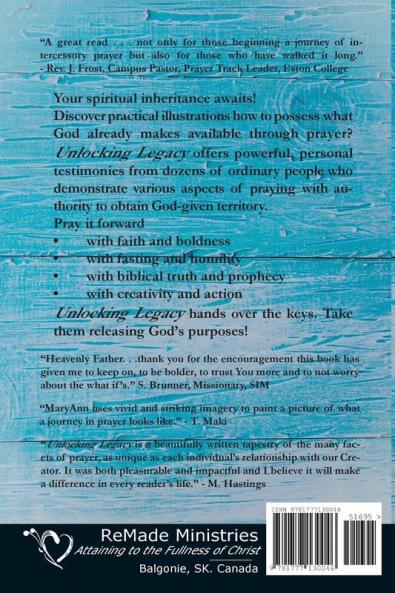 “A great read . . . not only for those beginning a journey of in-
tercessory prayer but also for those who have walked it long.”
- Rev. J. Frost, Campus Pastor, Prayer Track Leader, Eston College
Your spiritual inheritance awaits!
Discover practical illustrations how to possess what
God already makes available through prayer?
Unlocking Legacy offers powerful, personal
testimonies from dozens of ordinary people who
demonstrate various aspects of praying with au-
thority to obtain God-given territory.
Pray it forward
• with faith and boldness
• with fasting and humility
• with biblical truth and prophecy
• with creativity and action
Unlocking Legacy hands over the keys. Take
them releasing God’s purposes!
“Heavenly Father. . .thank you for the encouragement this book has
given me to keep on, to be bolder, to trust You more and to not worry
about the what if’s.” S. Brunner, Missionary, SIM
“MaryAnn uses vivid and striking imagery to paint a picture of what
a journey in prayer looks like.” - T. Maki
“Unlocking Legacy is a beautifully written tapestry of the many fac-
ets of prayer, as unique as each individual’s relationship with our Cre-
ator. It was both pleasurable and impactful and I believe it will make
a difference in every reader’s life.” - M. Hastings
ReMade Ministries
Attaining to the Fullness of Christ
Balgonie, SK. Canada
ISBN 9781777130046
51695 >
9 781777 130046